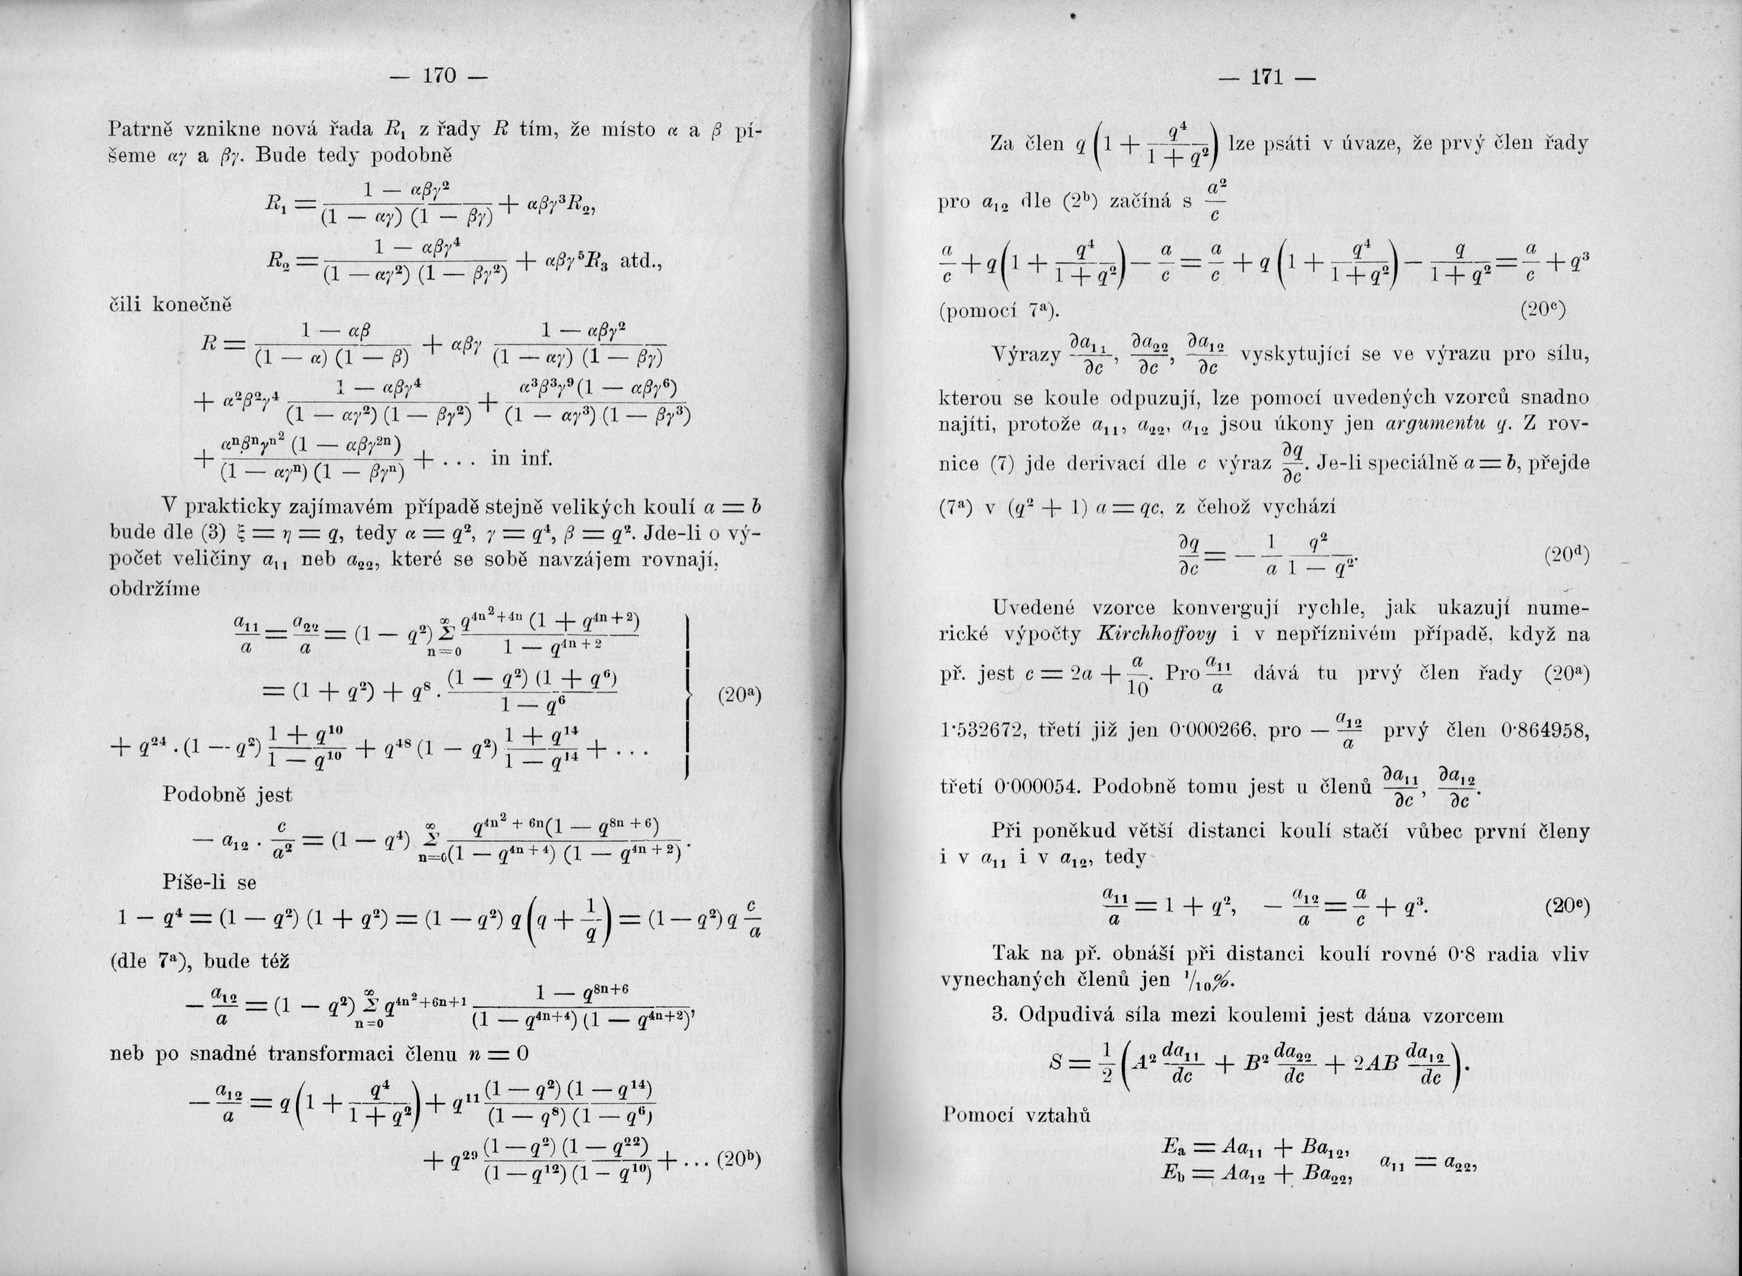 — 170 —
Patrně vznikne nová řada R₁ z řady R tím, že místo α a β pí-
šeme αγ a βγ. Bude tedy podobně
R₁ = (1 — αβγ²)/((1 — αγ) (1 — βγ)) + αβγ³R₂,
R₂ = (1 — αβγ⁴)/((1 — αγ²) (1 — βγ²)) + αβγ⁵R₃ atd.,
čili konečně
R = (1 — αβ)/((1 — α) (1 — β)) + αβγ (1 — αβγ²)/((1 — αγ) (1 — βγ))
+ α²β²γ⁴ (1 — αβγ⁴)/((1 — αγ²) (1 — βγ²)) + (α³β³γ⁹(1 — αβγ⁶))/((1 — αγ³) (1 — βγ³))
+ (αⁿβⁿγ^{n²} (1 — αβγ²ⁿ))/((1 — αγⁿ) (1 — βγⁿ)) + . . . in inf.
V prakticky zajímavém případě stejně velikých koulí a = b
bude dle (3) ξ = η = q, tedy α = q², γ = q⁴, β = q². Jde-li o vý-
počet veličiny a₁₁ neb a₂₂, které se sobě navzájem rovnají,
obdržíme
a₁₁/a = a₂₂/a = (1 — q²) Σ_{n=0}^{∞} (q^{4n²+4n} (1 + q^{4n+2}))/(1 — q^{4n+2})
= (1 + q²) + q⁸ . ((1 — q²) (1 + q⁶))/(1 — q⁶) (20ᵃ)
+ q²⁴ . (1 — q²) (1 + q¹⁰)/(1 — q¹⁰) + q⁴⁸ (1 — q²) (1 + q¹⁴)/(1 — q¹⁴) + . . .
Podobně jest
— a₁₂ . c/a² = (1 — q⁴) Σ_{n=0}^{∞} (q^{4n²+6n}(1 — q^{8n+6}))/((1 — q^{4n+4}) (1 — q^{4n+2})).
Píše-li se
1 — q⁴ = (1 — q²) (1 + q²) = (1 — q²) q (q + 1/q) = (1 — q²) q c/a
(dle 7ᵃ), bude též
— a₁₂/a = (1 — q²) Σ_{n=0}^{∞} q^{4n²+6n+1} (1 — q^{8n+6})/((1 — q^{4n+4}) (1 — q^{4n+2})),
neb po snadné transformaci členu n = 0
— a₁₂/a = q (1 + q⁴/(1 + q²)) + q¹¹ ((1 — q²) (1 — q¹⁴))/((1 — q⁸) (1 — q⁶))
+ q²⁹ ((1 — q²) (1 — q²²))/((1 — q¹²) (1 — q¹⁰)) + . . . (20ᵇ)
— 171 —
Za člen q (1 + q⁴/(1 + q²)) lze psáti v úvaze, že prvý člen řady
pro a₁₂ dle (2ᵇ) začíná s a²/c
a/c + q (1 + q⁴/(1 + q²)) — a/c = a/c + q (1 + q⁴/(1 + q²)) — q/(1 + q²) = a/c + q³
(pomocí 7ᵃ). (20ᶜ)
Výrazy ∂a₁₁/∂c, ∂a₂₂/∂c, ∂a₁₂/∂c vyskytující se ve výrazu pro sílu,
kterou se koule odpuzují, lze pomocí uvedených vzorců snadno
najíti, protože a₁₁, a₂₂, a₁₂ jsou úkony jen argumentu q. Z rov-
nice (7) jde derivací dle c výraz ∂q/∂c. Je-li speciálně a = b, přejde
(7ᵃ) v (q² + 1) a = qc, z čehož vychází
∂q/∂c = — 1/a q²/(1 — q²). (20ᵈ)
Uvedené vzorce konvergují rychle, jak ukazují nume-
rické výpočty Kirchhoffovy i v nepříznivém případě, když na
př. jest c = 2a + a/10. Pro a₁₁/a dává tu prvý člen řady (20ᵃ)
1·532672, třetí již jen 0·000266, pro — a₁₂/a prvý člen 0·864958,
třetí 0·000054. Podobně tomu jest u členů ∂a₁₁/∂c, ∂a₁₂/∂c.
Při poněkud větší distanci koulí stačí vůbec první členy
i v a₁₁ i v a₁₂, tedy
a₁₁/a = 1 + q², — a₁₂/a = a/c + q³. (20ᵉ)
Tak na př. obnáší při distanci koulí rovné 0·8 radia vliv
vynechaných členů jen ¹/₁₀%.
3. Odpudivá síla mezi koulemi jest dána vzorcem
S = 1/2 (A² da₁₁/dc + B² da₂₂/dc + 2AB da₁₂/dc).
Pomocí vztahů
Eₐ = Aa₁₁ + Ba₁₂,
a₁₁ = a₂₂,
E_b = Aa₁₂ + Ba₂₂,